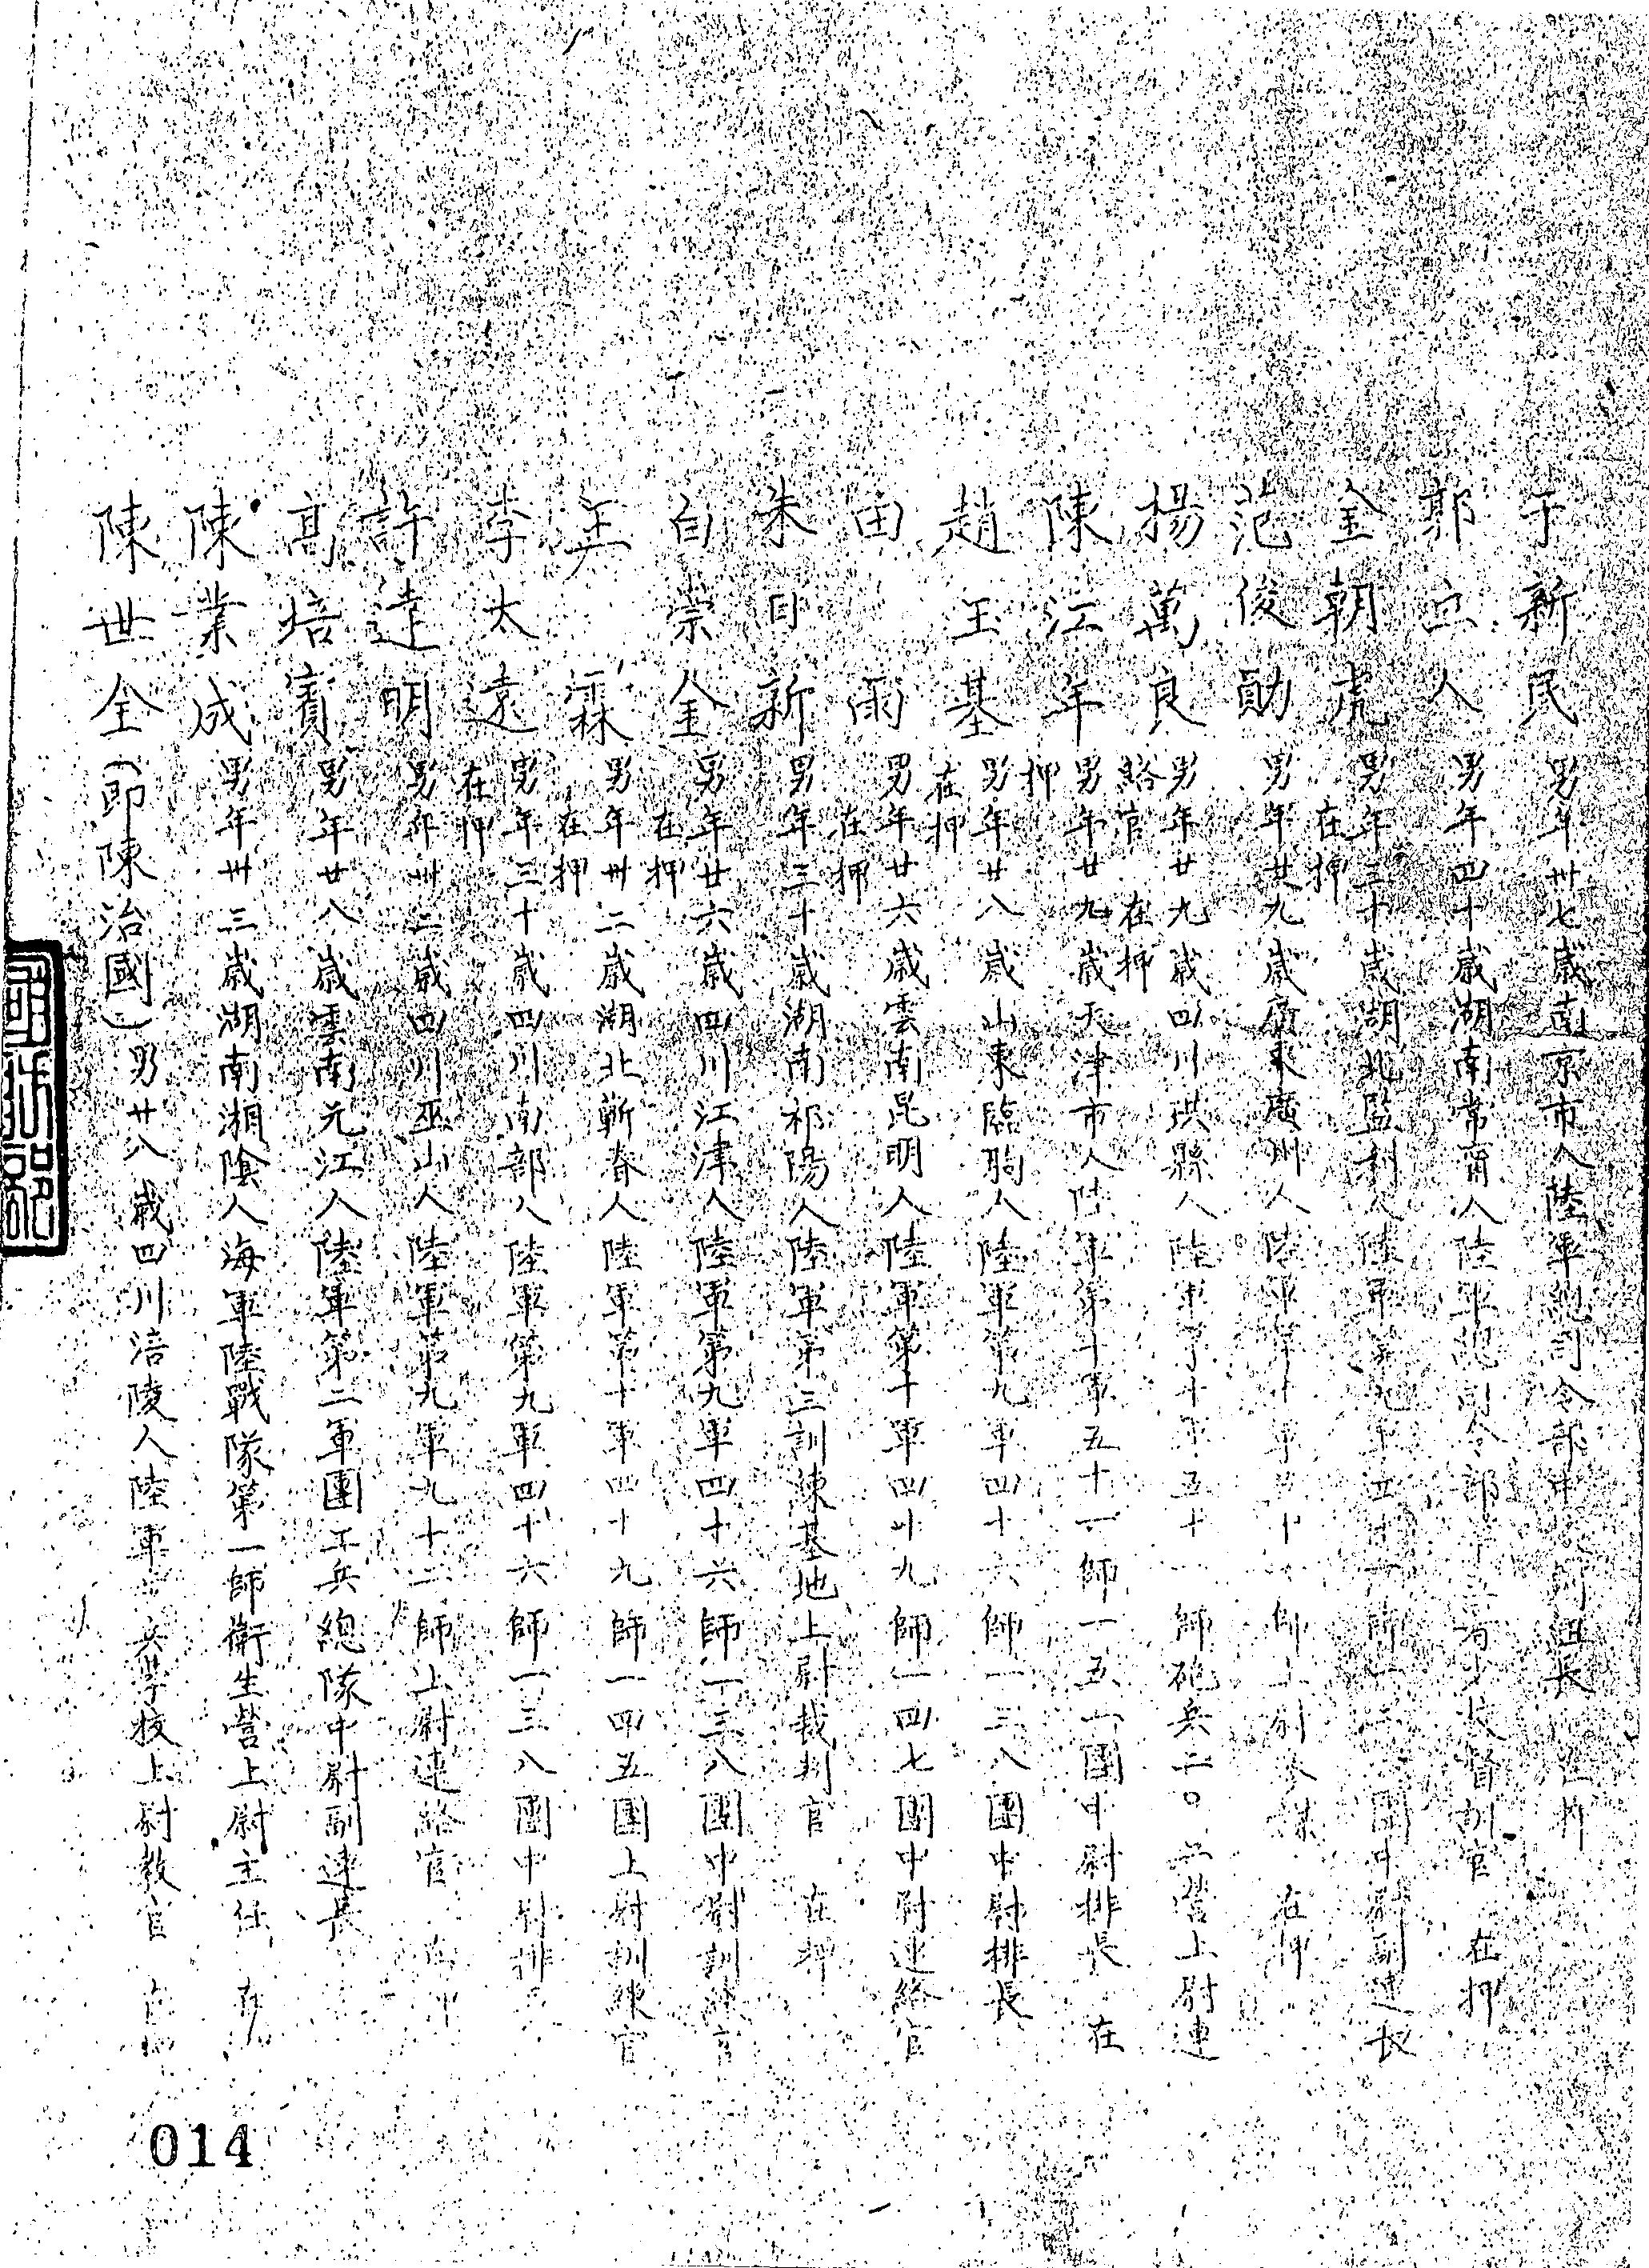 于新民 男年卅七歲南京市人陸軍總司令部中校 組長 在押
郭立人 男年四十歲湖南常甯人陸軍總司令部 少校督訓官 在押
金朝虎 男年三十歲湖北監利人陸軍第九軍 師 團中尉副連長
在押
范俊勛 男年廿九歲廣東廣州人陸軍第十軍 師上尉參謀 在押
楊萬良 男年廿九歲四川珙縣人陸軍第十軍五十一師砲兵二〇二營上尉連
絡官 在押
陳江年 男年廿九歲天津市人陸軍第十軍五十一師一五一團中尉排長 在
押
趙玉基 男年廿八歲山東臨朐人陸軍第九軍四十六師一三八團中尉排長
在押
田雨 男年廿六歲雲南昆明人陸軍第十軍四十九師一四七團中尉連絡官
在押
朱日新 男年三十歲湖南祁陽人陸軍第三訓練基地上尉裁判官 在押
白崇金 男年廿六歲四川江津人陸軍第九軍四十六師一三八團中尉訓練官
在押
王霖 男年卅二歲湖北蘄春人陸軍第十軍四十九師一四五團上尉訓練官
在押
李太遠 男年三十歲四川南部人陸軍第九軍四十六師一三八團中尉排長
在押
許達明 男年卅二歲四川巫山人陸軍第九軍九十二師上尉連絡官 在押
高培賓 男年廿八歲雲南元江人陸軍第二軍團工兵總隊中尉副連長
陳業成 男年卅三歲湖南湘陰人海軍陸戰隊第一師衛生營上尉主任 在押
陳世全(即陳治國)男廿八歲四川涪陵人陸軍 兵學校上尉教官 在押
014